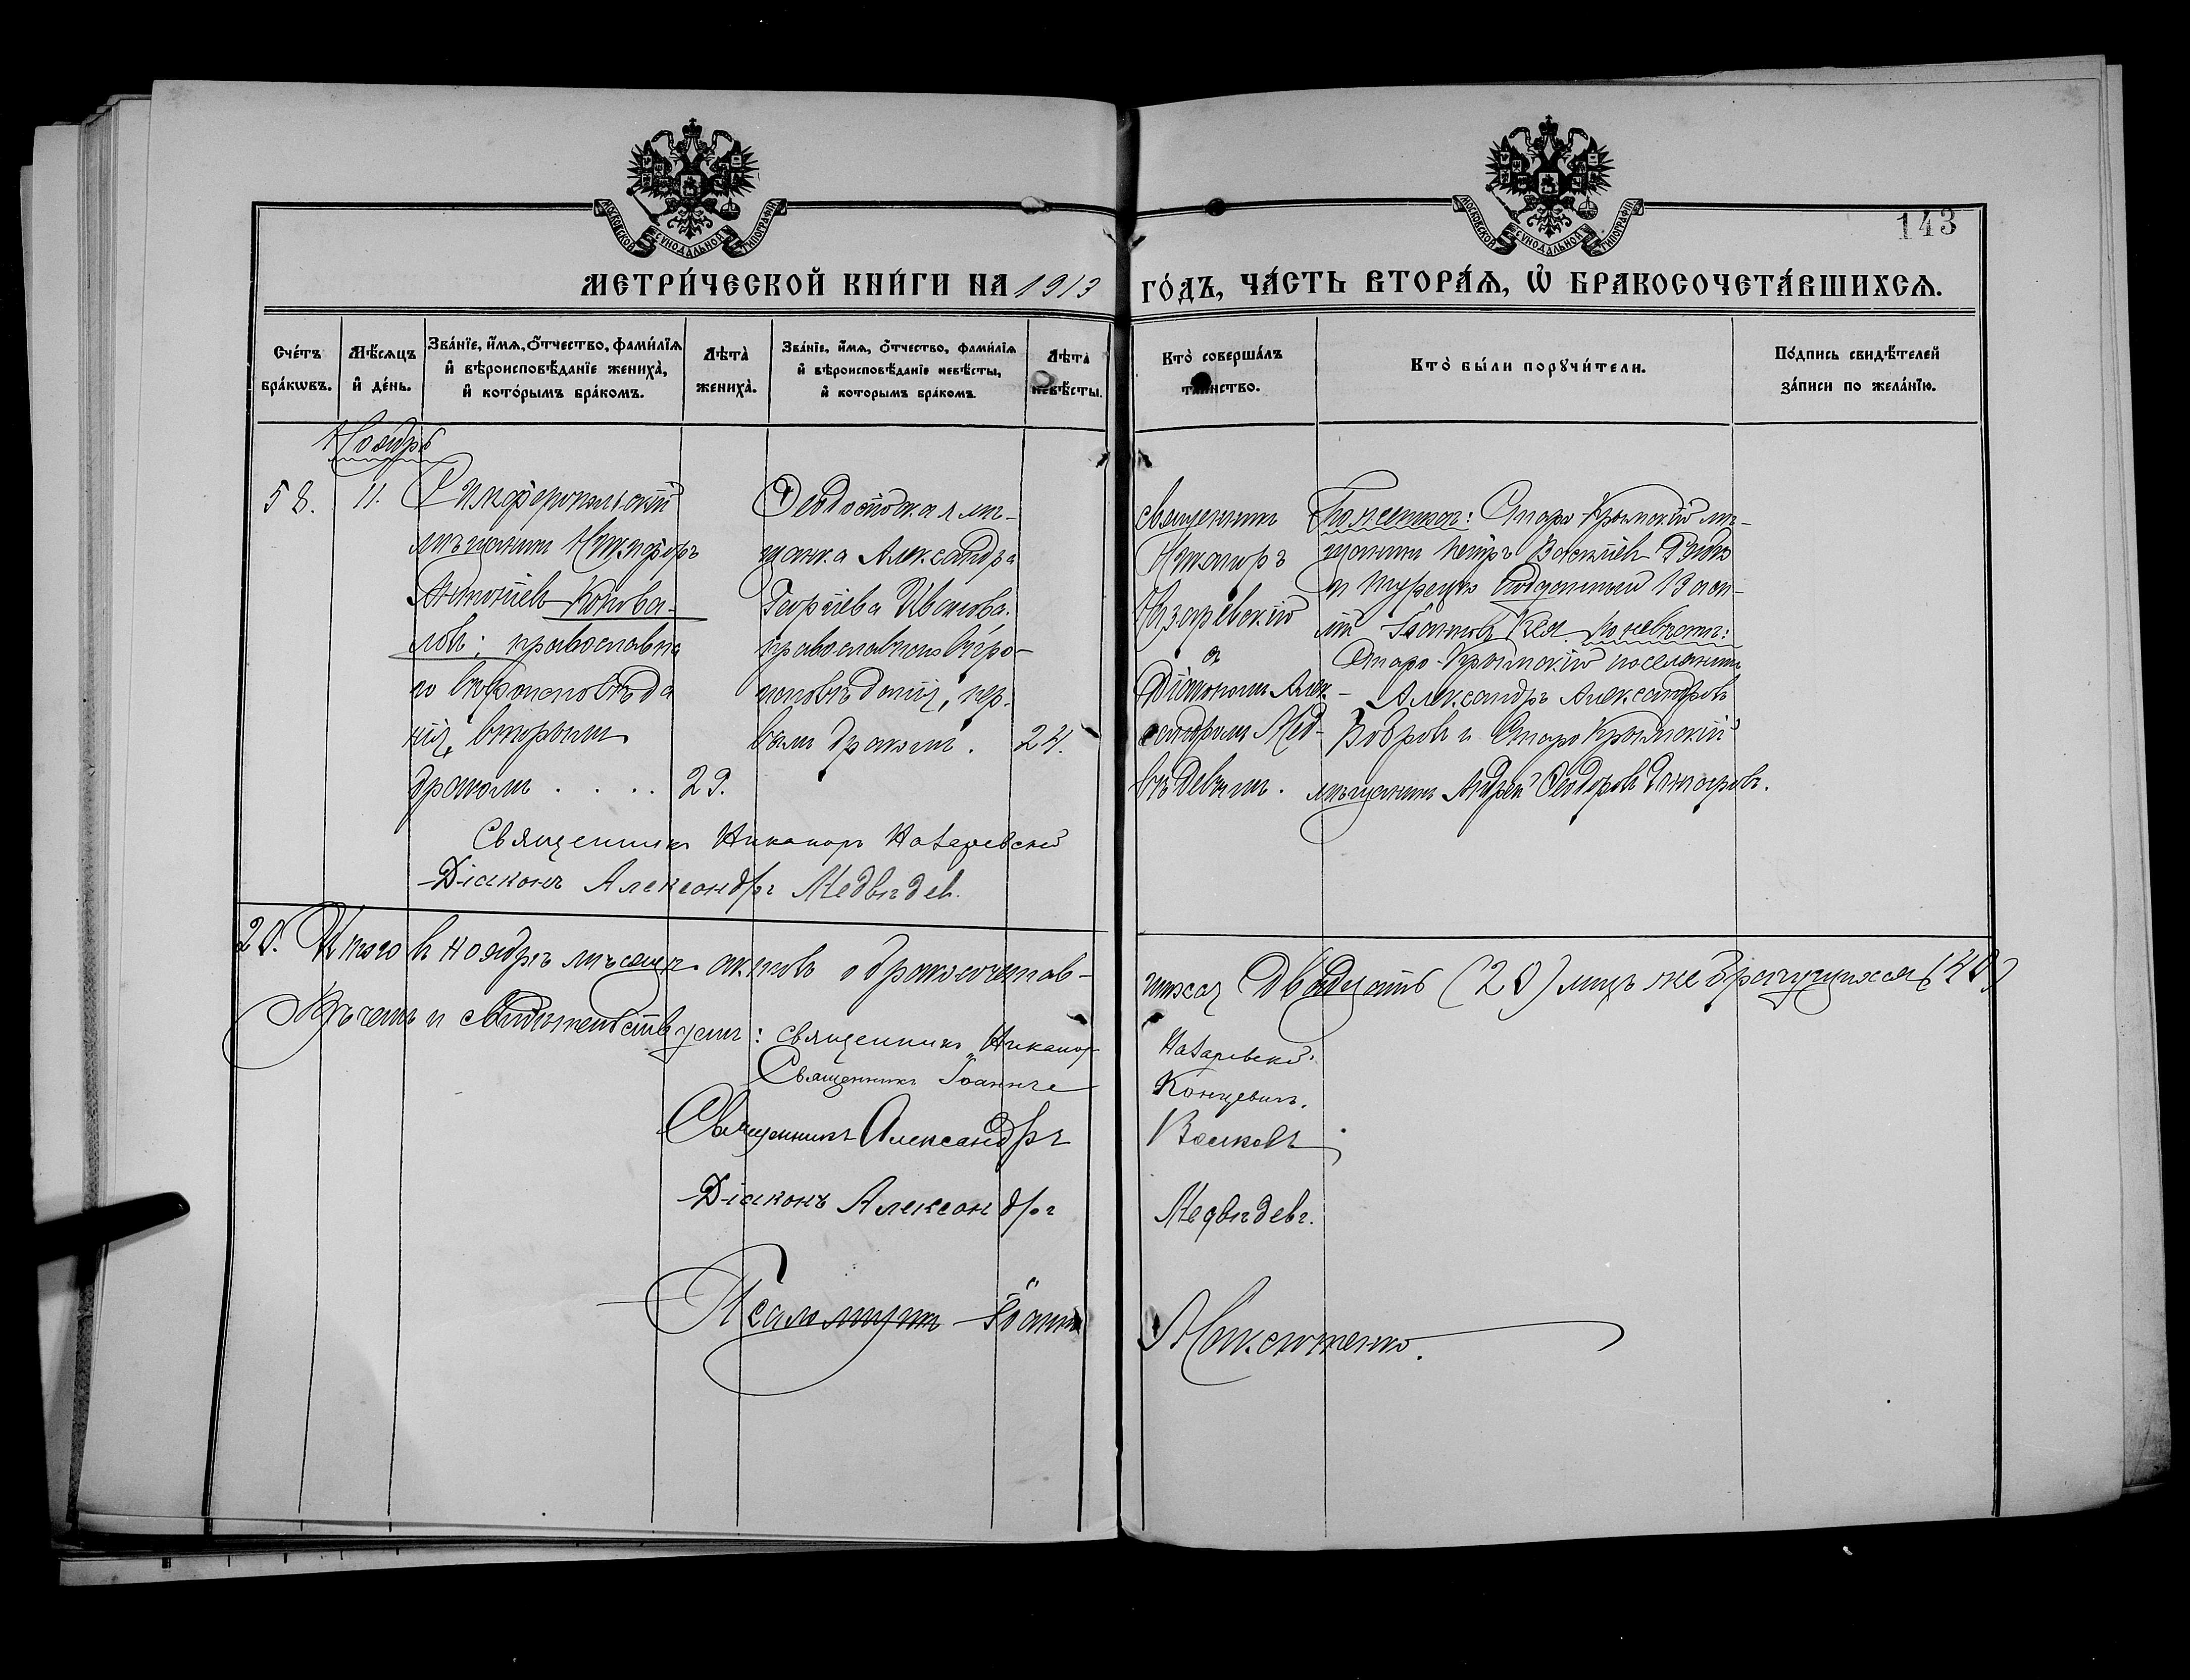 МОСКОВСКОЙ СУНОДАЛЬНОЙ ТИПОГРАФІИ
МОСКОВСКОЙ СУНОДАЛЬНОЙ ТИПОГРАФІИ
143
МЕТРИ́ЧЕСКОЙ КНИ́ГИ НА 1913 ГО́ДЪ, ЧА́СТЬ ВТОРА́Ѧ, Ѽ БРАКОСОЧЕТА́ВШИХСѦ.
Сче́тъ бра́кѡвъ.
Мѣ́сѧцъ и҆ де́нь.
Зва́нїе, и҆́мѧ, ѻ҆́тчество, фами́лїѧ и҆ вѣроисповѣ́данїе жениха̀, и҆ кото́рымъ бра́комъ.
Лѣ́та̀ жениха̀.
Зва́нїе, и҆́мѧ, ѻ҆́тчество, фами́лїѧ и҆ вѣроисповѣ́данїе невѣ́сты, и҆ которымъ бракомъ
Лѣ́та невѣ́сты.
Кто̀ соверша́лъ таи́нство.
Кто̀ бы́ли порꙋчи́тели.
По́дпись свидѣ́телей за́писи по жела́нїю.
Ноябрь
58.
11.
Симферопольскій
мѣщанинъ Никифоръ
Антоніевъ Конова-
ловъ; православна
го вѣроисповѣда
нія, вторымъ
бракомъ . . . .
29.
Ѳеодосійская мѣ-
щанка Александра
Георгіева Иванова.
православнаго вѣро-
исповѣданія, пер-
вымъ бракомъ.
24.
Священникъ
Никаноръ
Назаревскій
съ
Діакономъ Алек-
сандромъ Мед-
вѣдевымъ.
По женихѣ: Старо-Крымскій мѣ-
щанинъ Петръ Васильевъ
и турецко подданный
Іоанновъ По невѣстѣ:
Старо-Крымскій поселянинъ
Александръ Александровъ
Бобровъ и Старо Крымскій
мѣщанинъ Андрей Ѳеодоровъ
Священникъ Никаноръ Назаревскій
Діаконъ Александръ Медвѣдев.
20. Итого въ ноябрѣ мѣсяцѣ актовъ о бракосочетав-
шихся двадцать (20) лицъ же брачущихся (40)
Въ чемъ и свидѣтельствуемъ: Священникъ Никаноръ Назаревскій.
Священникъ Іоаннъ Концевичъ.
Священникъ Александръ Волковъ
Діаконъ Александръ Медвѣдевъ.
Псаломщикъ Іоаннъ